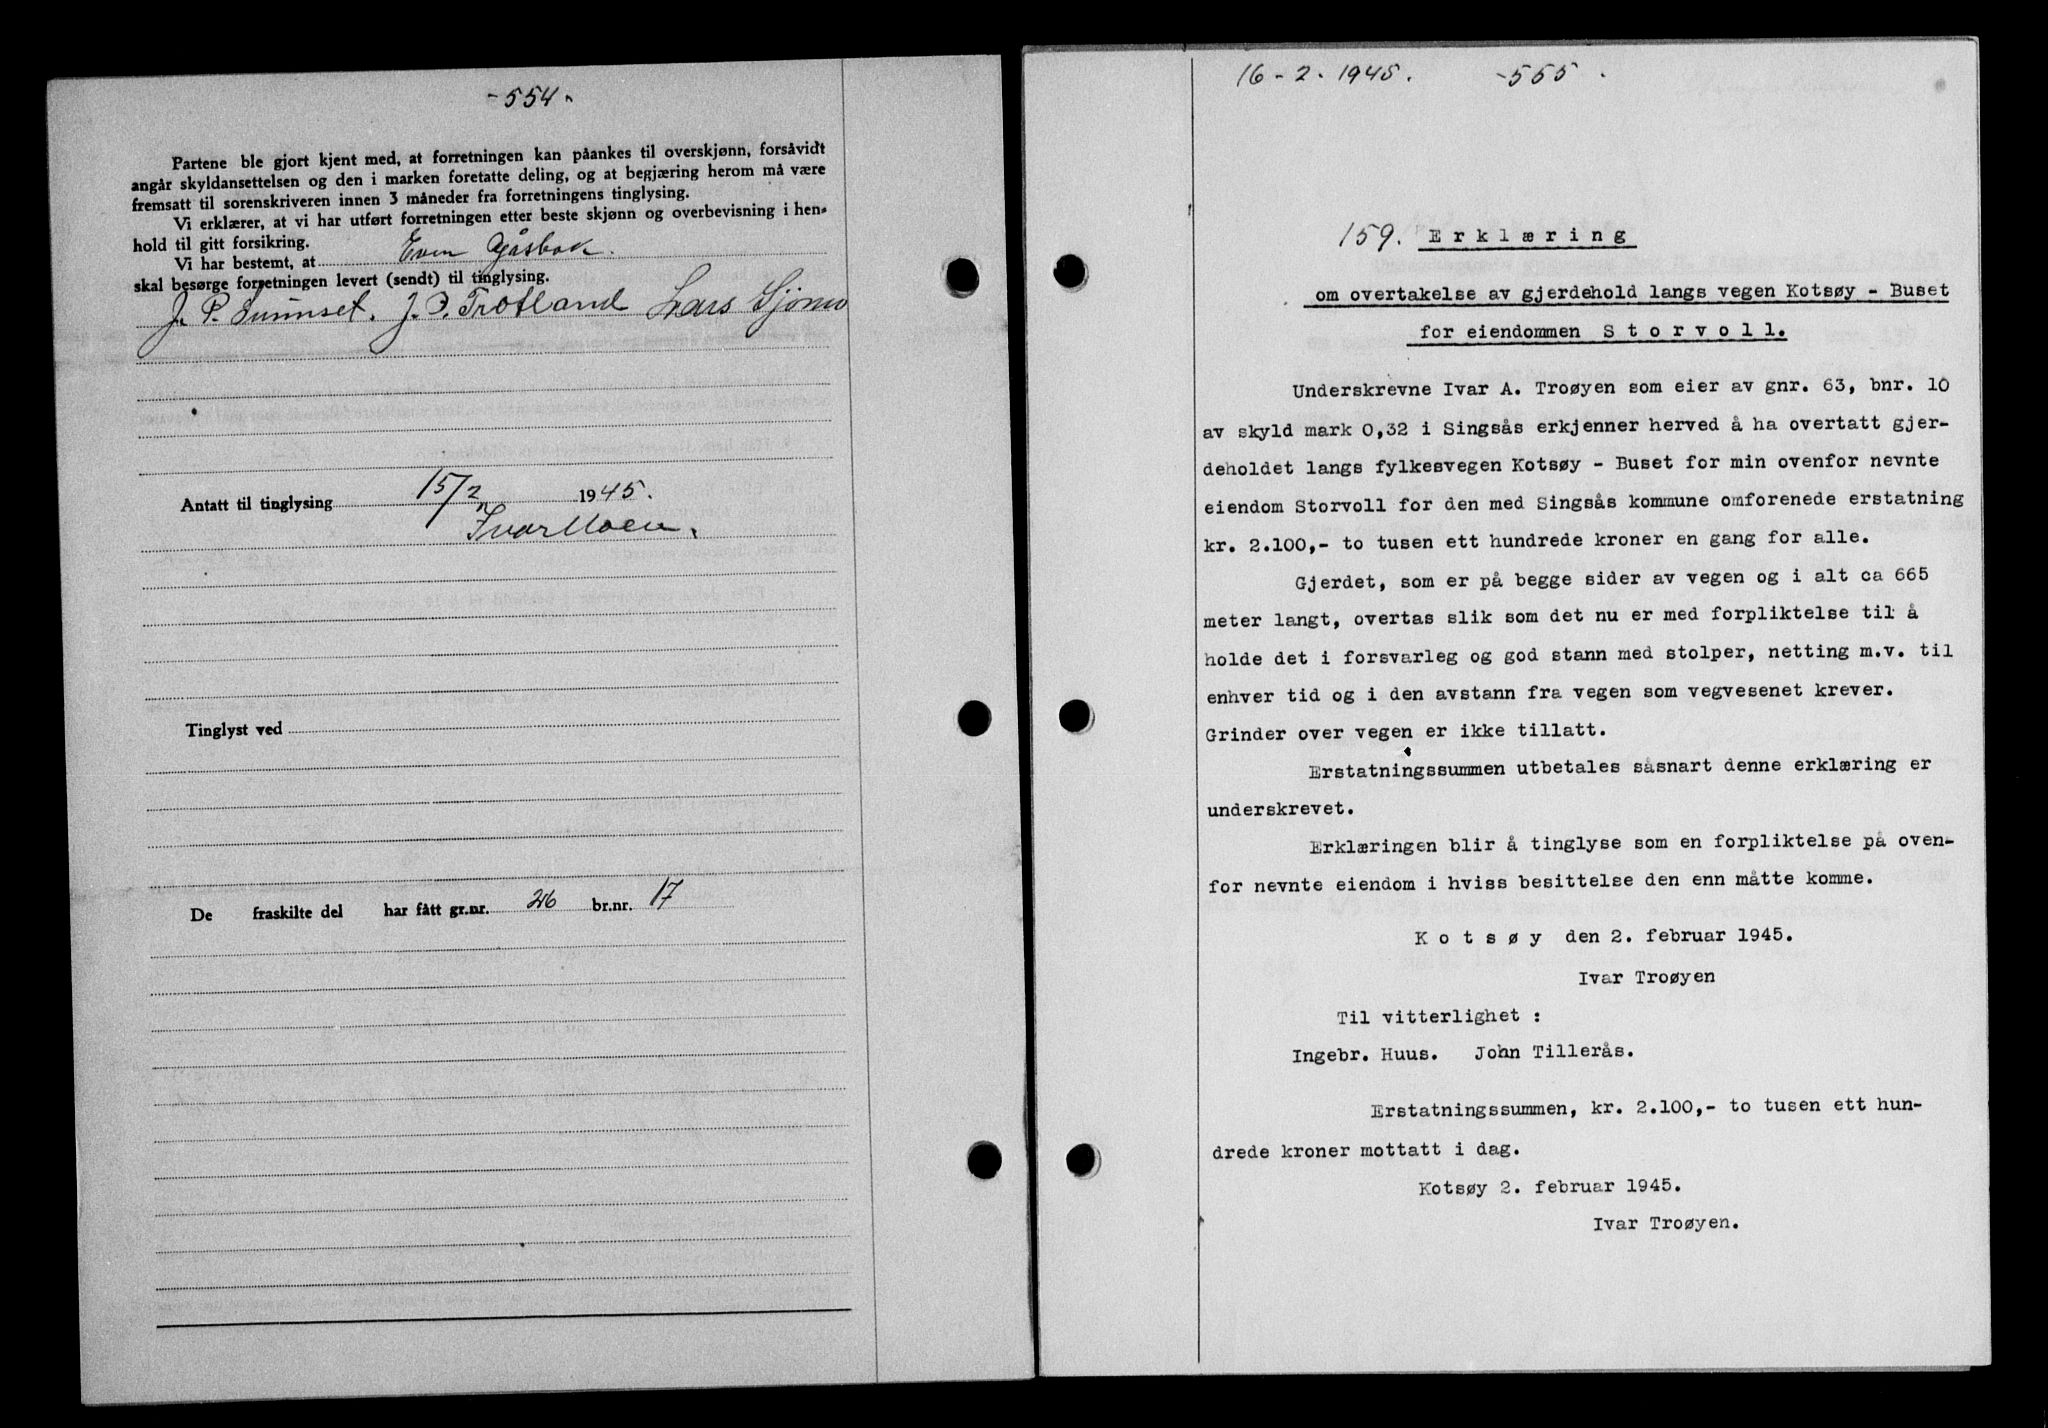 - 554 -
Partene ble gjort kjent med, at forretningen kan påankes til overskjønn, forsåvidt
angår skyldansettelsen og den i marken foretatte deling, og at begjæring herom må være
fremsatt til sorenskriveren innen 3 måneder fra forretningens tinglysing.
Vi erklærer, at vi har utført forretningen etter beste skjønn og overbevisning i hen-
hold til gitt forsikring.
Vi har bestemt, at Even Gåsbak.
skal besørge forretningen levert (sendt) til tinglysing.
J. P. J. P. Trotland Lars
Antatt til tinglysing 15/2 1945.
Ivar Moen.
Tinglyst ved
De fraskilte del har fått gr.nr. 26 br.nr. 17
16-2-1945. -555.
159. Erklæring
om overtakelse av gjerdehold langs vegen Kotsøy - Buset
for eiendommen Storvoll.
Underskrevne Ivar A. Troøyen som eier av gnr. 63, bnr. 10
av skyld mark 0,32 i Singsås erkjenner herved å ha overtatt gjer-
deholdet langs fylkesvegen Kotsøy - Buset for min ovenfor nevnte
eiendom Storvoll for den med Singsås kommune omforenede erstatning
kr. 2.100,- to tusen ett hundrede kroner en gang for alle.
Gjerdet, som er på begge sider av vegen og i alt ca 665
meter langt, overtas slik som det nu er med forpliktelse til å
holde det i forsvarleg og god stann med stolper, netting m.v. til
enhver tid og i den avstann fra vegen som vegvesenet krever.
Grinder over vegen er ikke tillatt.
Erstatningssummen utbetales såsnart denne erklæring er
underskrevet.
Erklæringen blir å tinglyse som en forpliktelse på oven-
for nevnte eiendom i hviss besittelse den enn måtte komme.
Kotsøy den 2. februar 1945.
Ivar Troøyen
Til vitterlighet :
Ingebr. Huus. John Tillerås.
Erstatningssummen, kr. 2.100,- to tusen ett hun-
drede kroner mottatt i dag.
Kotsøy 2. februar 1945.
Ivar Troøyen.